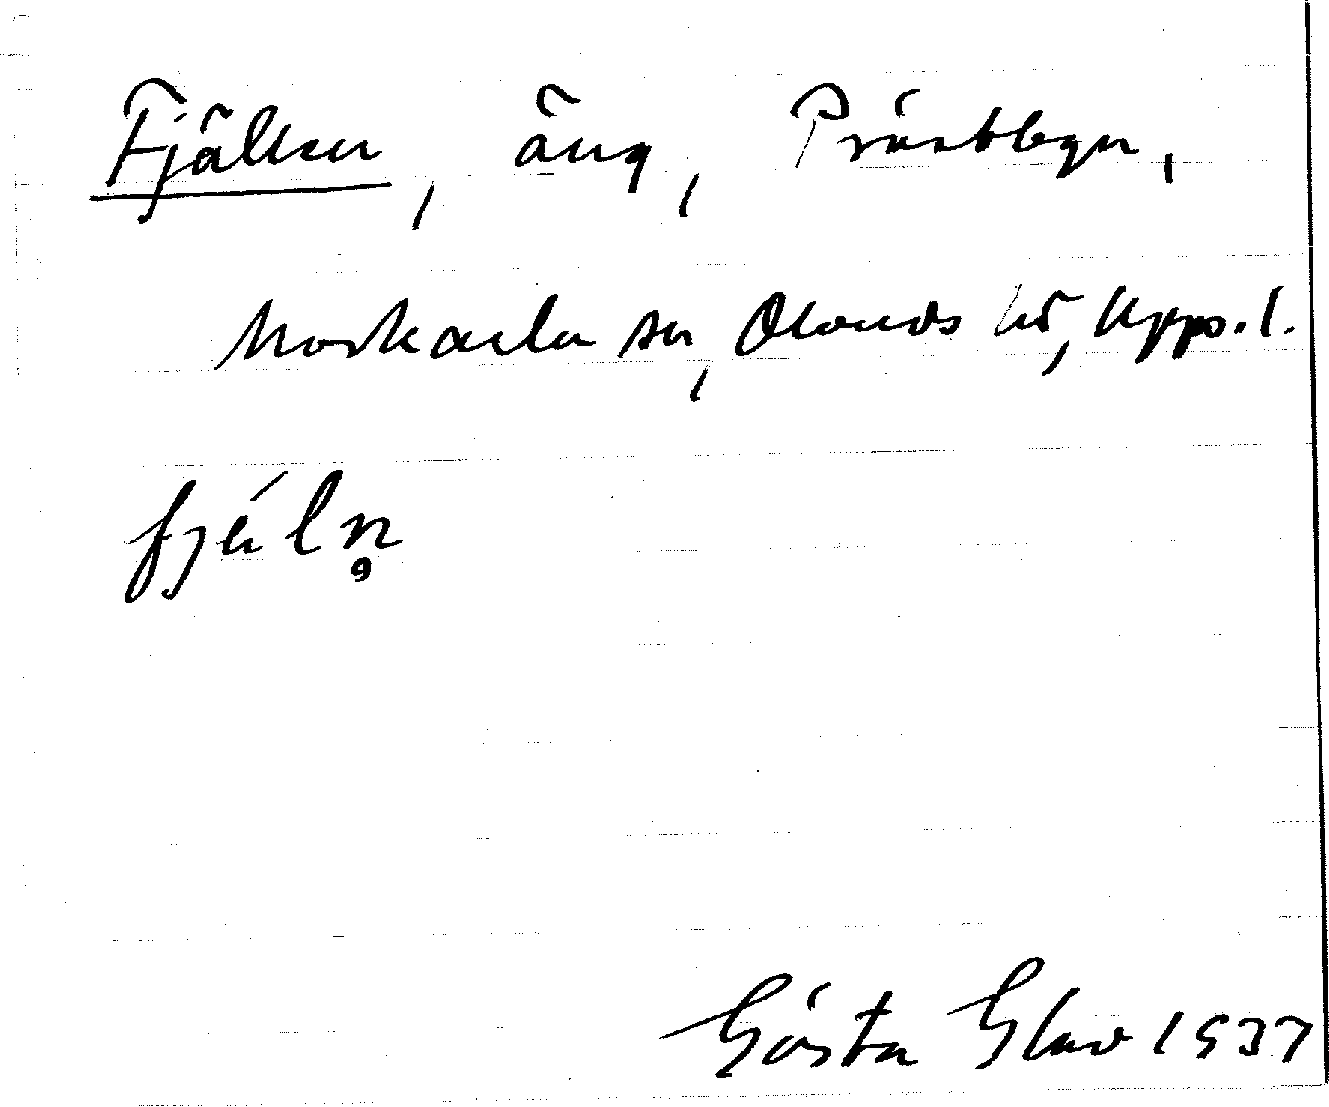 Fjällen, äng, Prästbyn,
Morkarla sn, Olands hd, Upps. l.
fjä́ln̥
Gösta Glav 1937